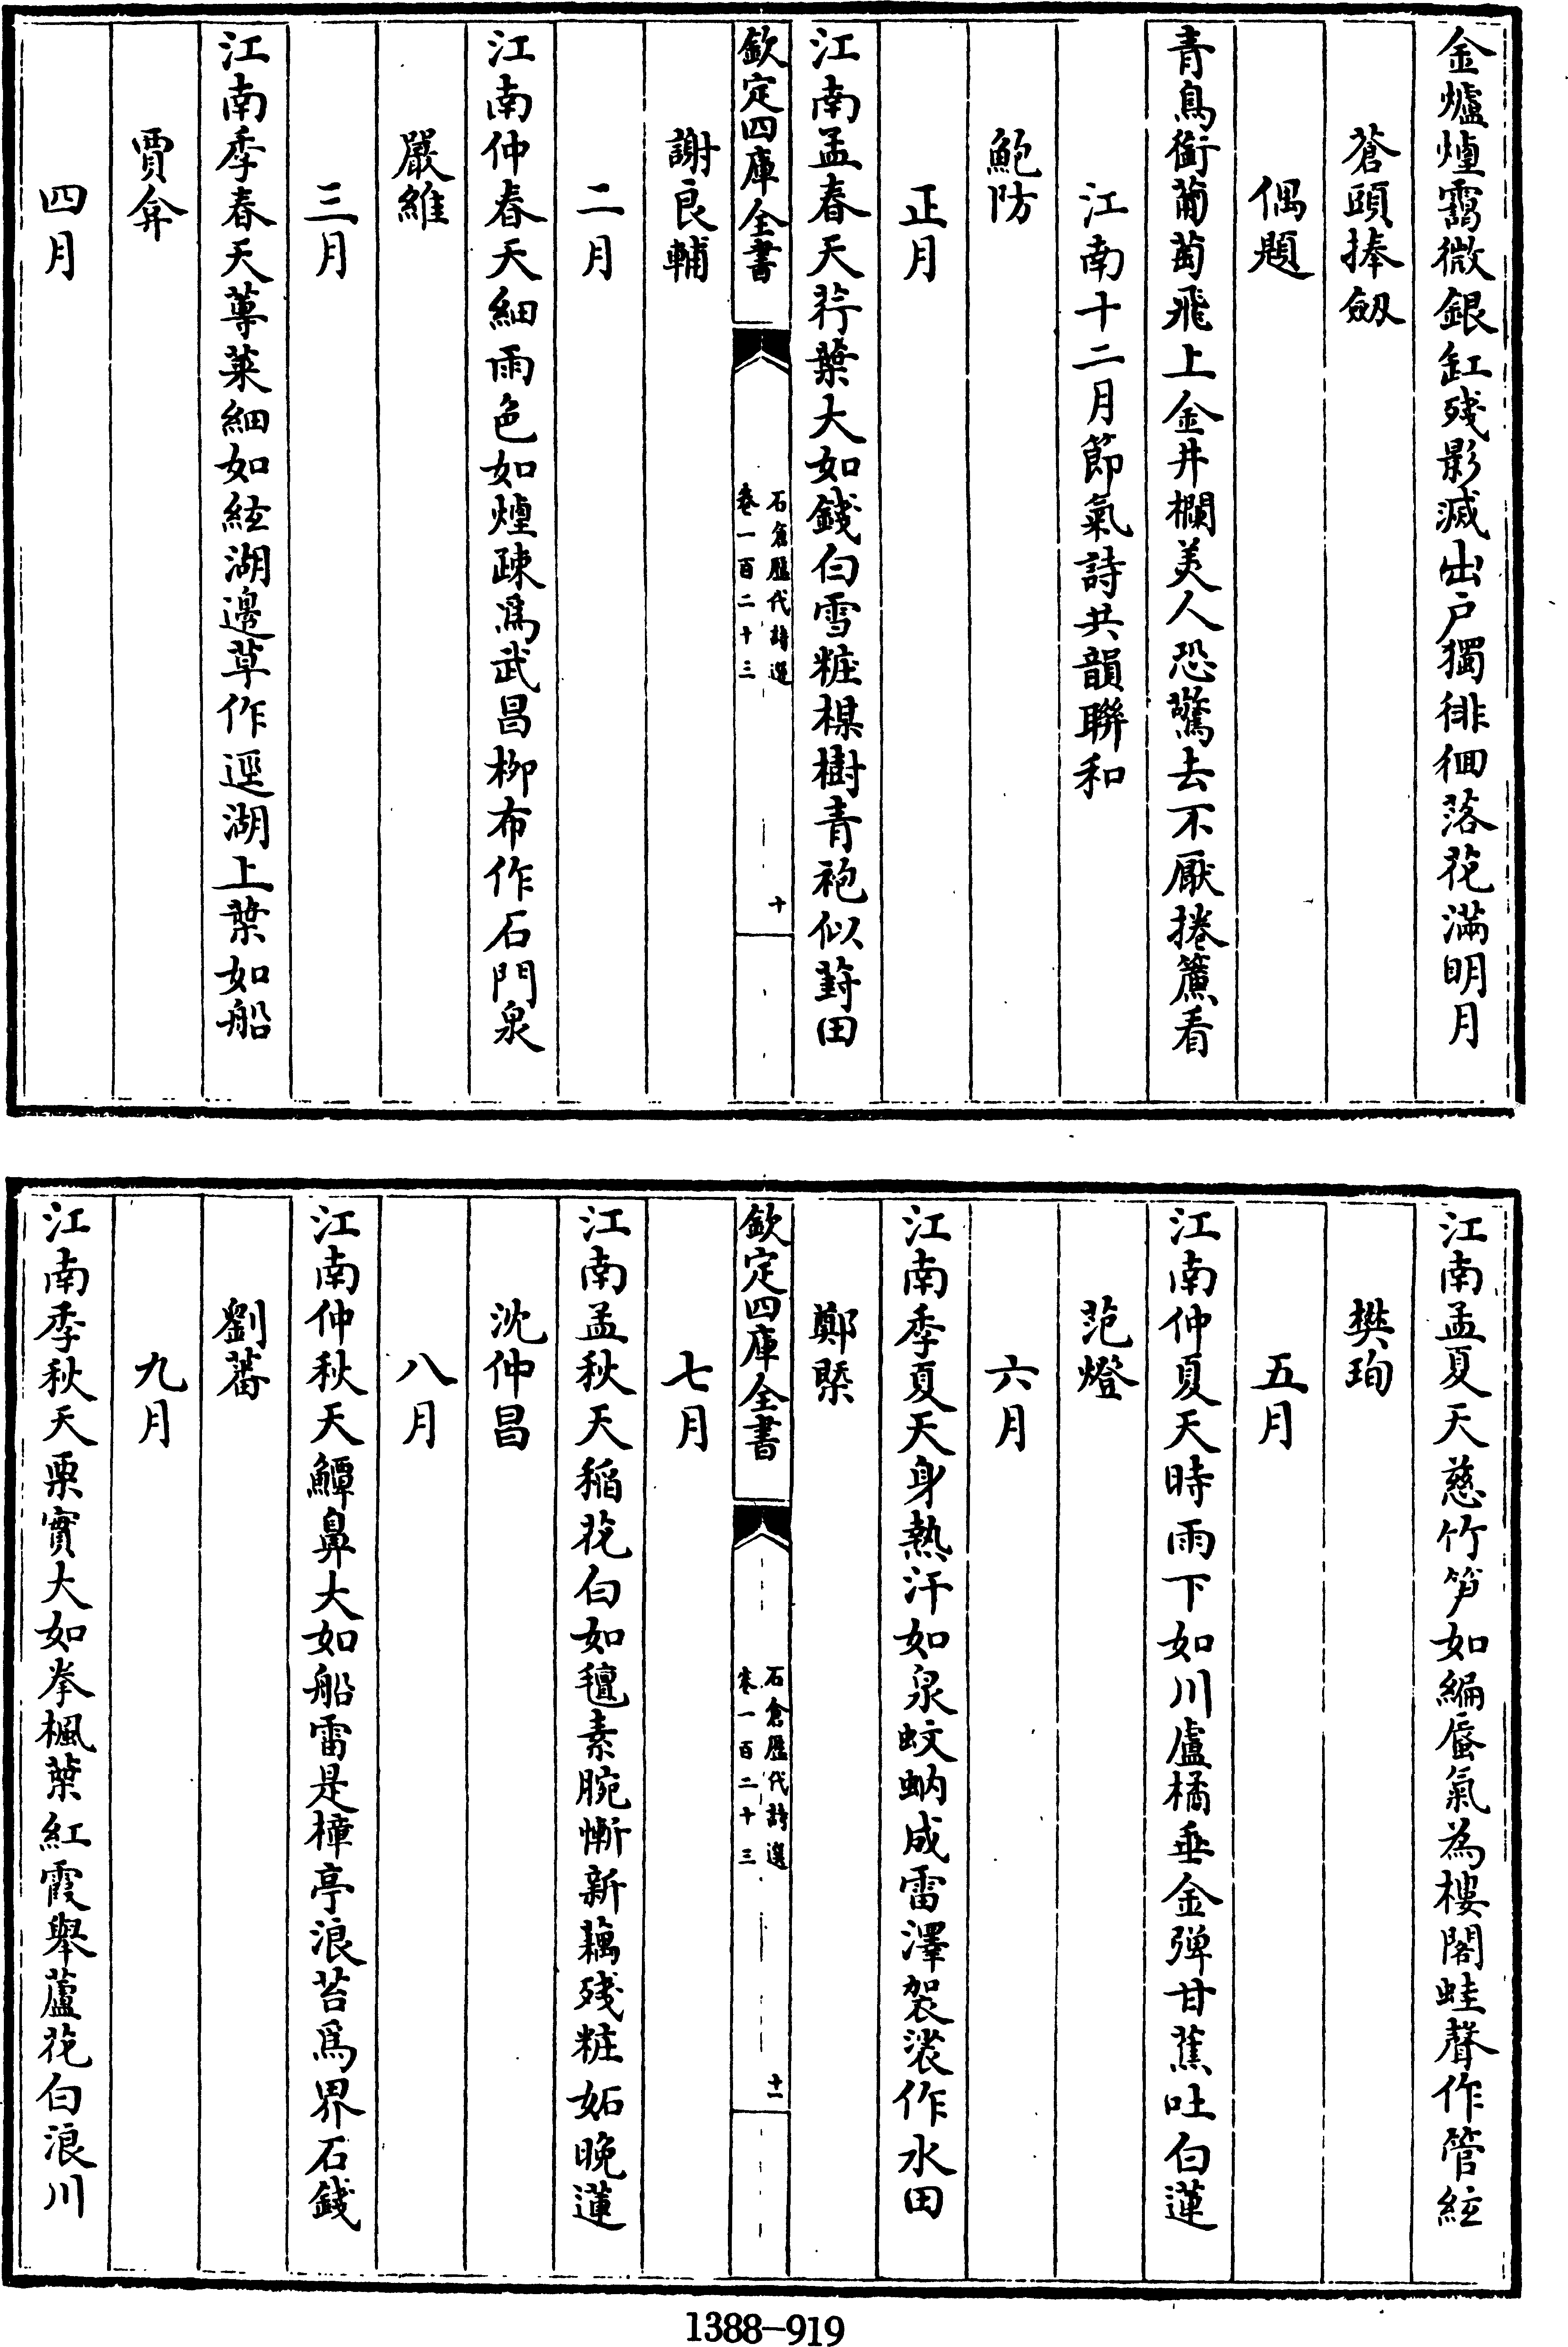 金爐煙靄微銀缸残影滅出户獨徘徊落花滿明月
蒼頭捧劔
偶題
青鳥銜葡萄飛上金井欄美人恐驚去不厭捲簾看
江南十二月節氣詩共韻聯和
鮑防
正月
江南孟春天荇葉大如錢白雪粧楳樹青袍似葑田
欽定四庫全書
石倉歷代詩選
卷一百二十三
十
謝良輔
二月
江南仲春天細雨色如煙疎爲武昌柳布作石門泉
嚴維
三月
江南季春天蓴菜細如絃湖邊草作逕湖上葉如船
賈弇
四月
江南孟夏天慈竹笋如編蜃氣為樓閣蛙聲作管絃
樊珣
五月
江南仲夏天時雨下如川盧橘垂金彈甘蕉吐白蓮
范燈
六月
江南季夏天身熱汗如泉蚊蚋成雷澤袈裟作水田
鄭槩
七月
欽定四庫全書
石倉歷代詩選
卷一百二十三
十一
江南孟秋天稻花白如氊素腕慚新藕残粧妬晚蓮
沈仲昌
八月
江南仲秋天鱏鼻大如船雷是樟亭浪苔爲界石錢
劉蕃
九月
江南季秋天栗實大如拳楓葉紅霞舉蘆花白浪川
1388-919